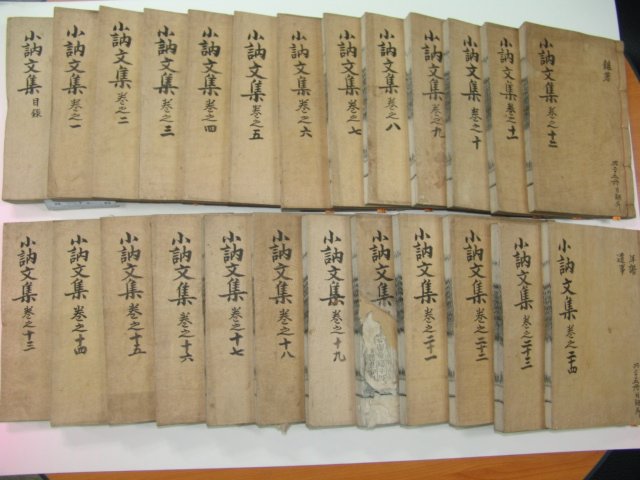 小訥文集 目錄
小訥文集 卷之一
小訥文集 卷之二
小訥文集 卷之三
小訥文集 卷之四
小訥文集 卷之五
小訥文集 卷之六
小訥文集 卷之七
小訥文集 卷之八
小訥文集 卷之九
小訥文集 卷之十
小訥文集 卷之十一
小訥文集 卷之十二
雜著
小訥文集 卷之十三
小訥文集 卷之十四
小訥文集 卷之十五
小訥文集 卷之十六
小訥文集 卷之十七
小訥文集 卷之十八
小訥文集 卷之十九
小訥文集
小訥文集 卷之二十一
小訥文集 卷之二十二
小訥文集 卷之二十三
小訥文集 卷之二十四
年譜
遺事